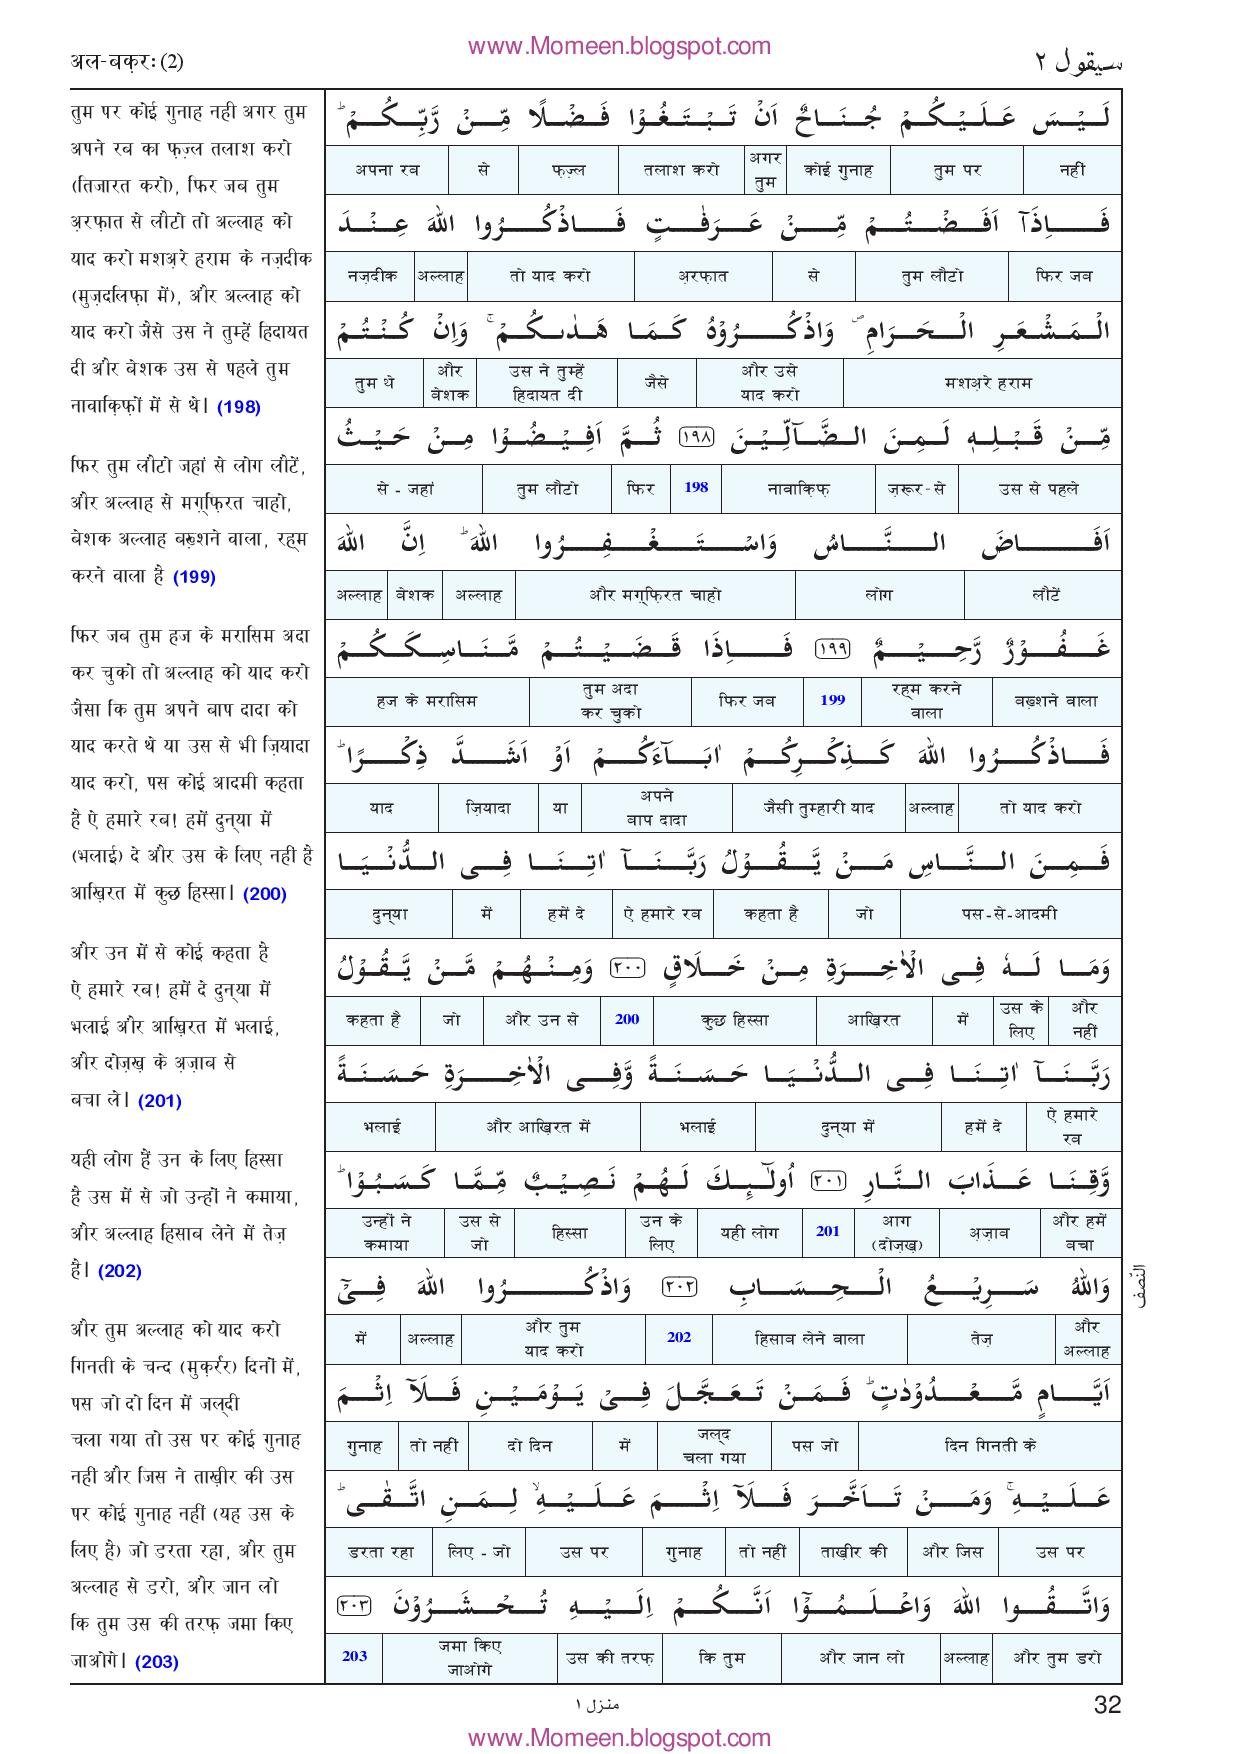 www.Momeen.blogspot.com
अल-बक़रः (2)
سيقول ٢
तुम पर कोई गुनाह नही अगर तुम
अपने रब का फ़ज़्ल तलाश करो
(तिजारत करो), फिर जब तुम
अ़रफ़ात से लौटो तो अल्लाह को
याद करो मशअ़रे हराम के नज़दीक
(मुज़दलिफ़ा में), और अल्लाह को
याद करो जैसे उस ने तुम्हें हिदायत
दी और बेशक उस से पहले तुम
नावाक़िफ़ों में से थे। (198)
फिर तुम लौटो जहां से लोग लौटें,
और अल्लाह से मग़्फ़िरत चाहो,
बेशक अल्लाह बख़्शने वाला, रह्म
करने वाला है (199)
फिर जब तुम हज के मरासिम अदा
कर चुको तो अल्लाह को याद करो
जैसा कि तुम अपने बाप दादा को
याद करते थे या उस से भी ज़ियादा
याद करो, पस कोई आदमी कहता
है ऐ हमारे रब! हमें दुन्या में
(भलाई) दे और उस के लिए नही है
आख़िरत में कुछ हिस्सा। (200)
और उन में से कोई कहता है
ऐ हमारे रब! हमें दे दुन्या में
भलाई और आख़िरत में भलाई,
और दोज़ख़ के अ़ज़ाब से
बचा ले। (201)
यही लोग हैं उन के लिए हिस्सा
है उस में से जो उन्हों ने कमाया,
और अल्लाह हिसाब लेने में तेज़
है। (202)
और तुम अल्लाह को याद करो
गिनती के चन्द (मुक़र्रर) दिनों में,
पस जो दो दिन में जल्दी
चला गया तो उस पर कोई गुनाह
नही और जिस ने ताख़ीर की उस
पर कोई गुनाह नहीं (यह उस के
लिए है) जो डरता रहा, और तुम
अल्लाह से डरो, और जान लो
कि तुम उस की तरफ़ जमा किए
जाओगे। (203)
لَيْسَ عَلَيْكُمْ جُنَاحٌ اَنْ تَبْتَغُوْا فَضْلًا مِّنْ رَّبِّكُمْ ؕ
अपना रब से फ़ज़्ल तलाश करो अगर तुम कोई गुनाह तुम पर नहीं
فَاِذَاۤ اَفَضْتُمْ مِّنْ عَرَفٰتٍ فَاذْكُرُوا اللّٰهَ عِنْدَ
नज़दीक अल्लाह तो याद करो अ़रफ़ात से तुम लौटो फिर जब
الْمَشْعَرِ الْحَرَامِ ۪ وَاذْكُرُوْهُ كَمَا هَدٰىكُمْ ۚ وَاِنْ كُنْتُمْ
तुम थे और बेशक उस ने तुम्हें हिदायत दी जैसे और उसे याद करो मशअ़रे हराम
مِّنْ قَبْلِهٖ لَمِنَ الضَّآلِّيْنَ ١٩٨ ثُمَّ اَفِيْضُوْا مِنْ حَيْثُ
से - जहां तुम लौटो फिर 198 नावाक़िफ़ ज़रूर-से उस से पहले
اَفَاضَ النَّاسُ وَاسْتَغْفِرُوا اللّٰهَ ؕ اِنَّ اللّٰهَ
अल्लाह बेशक अल्लाह और मग़्फ़िरत चाहो लोग लौटें
غَفُوْرٌ رَّحِيْمٌ ١٩٩ فَاِذَا قَضَيْتُمْ مَّنَاسِكَكُمْ
हज के मरासिम तुम अदा कर चुको फिर जब 199 रह्म करने वाला बख़्शने वाला
فَاذْكُرُوا اللّٰهَ كَذِكْرِكُمْ اٰبَآءَكُمْ اَوْ اَشَدَّ ذِكْرًا ؕ
याद ज़ियादा या अपने बाप दादा जैसी तुम्हारी याद अल्लाह तो याद करो
فَمِنَ النَّاسِ مَنْ يَّقُوْلُ رَبَّنَاۤ اٰتِنَا فِى الدُّنْيَا
दुन्या में हमें दे ऐ हमारे रब कहता है जो पस-से-आदमी
وَمَا لَهٗ فِى الْاٰخِرَةِ مِنْ خَلَاقٍ ٢٠٠ وَمِنْهُمْ مَّنْ يَّقُوْلُ
कहता है जो और उन से 200 कुछ हिस्सा आख़िरत में उस के लिए और नहीं
رَبَّنَاۤ اٰتِنَا فِى الدُّنْيَا حَسَنَةً وَّفِى الْاٰخِرَةِ حَسَنَةً
भलाई और आख़िरत में भलाई दुन्या में हमें दे ऐ हमारे रब
وَّقِنَا عَذَابَ النَّارِ ٢٠١ اُولٰٓئِكَ لَهُمْ نَصِيْبٌ مِّمَّا كَسَبُوْا ؕ
उन्हों ने कमाया उस से जो हिस्सा उन के लिए यही लोग 201 आग (दोज़ख़) अ़ज़ाब और हमें बचा
وَاللّٰهُ سَرِيْعُ الْحِسَابِ ٢٠٢ وَاذْكُرُوا اللّٰهَ فِىْۤ
में अल्लाह और तुम याद करो 202 हिसाब लेने वाला तेज़ और अल्लाह
اَيَّامٍ مَّعْدُوْدٰتٍ ؕ فَمَنْ تَعَجَّلَ فِىْ يَوْمَيْنِ فَلَاۤ اِثْمَ
गुनाह तो नहीं दो दिन में जल्द चला गया पस जो दिन गिनती के
عَلَيْهِ ۚ وَمَنْ تَاَخَّرَ فَلَاۤ اِثْمَ عَلَيْهِ ۙ لِمَنِ اتَّقٰى ؕ
डरता रहा लिए - जो उस पर गुनाह तो नहीं ताख़ीर की और जिस उस पर
وَاتَّقُوا اللّٰهَ وَاعْلَمُوْۤا اَنَّكُمْ اِلَيْهِ تُحْشَرُوْنَ ٢٠٣
203 जमा किए जाओगे उस की तरफ़ कि तुम और जान लो अल्लाह और तुम डरो
النّصف
منزل ١
32
www.Momeen.blogspot.com